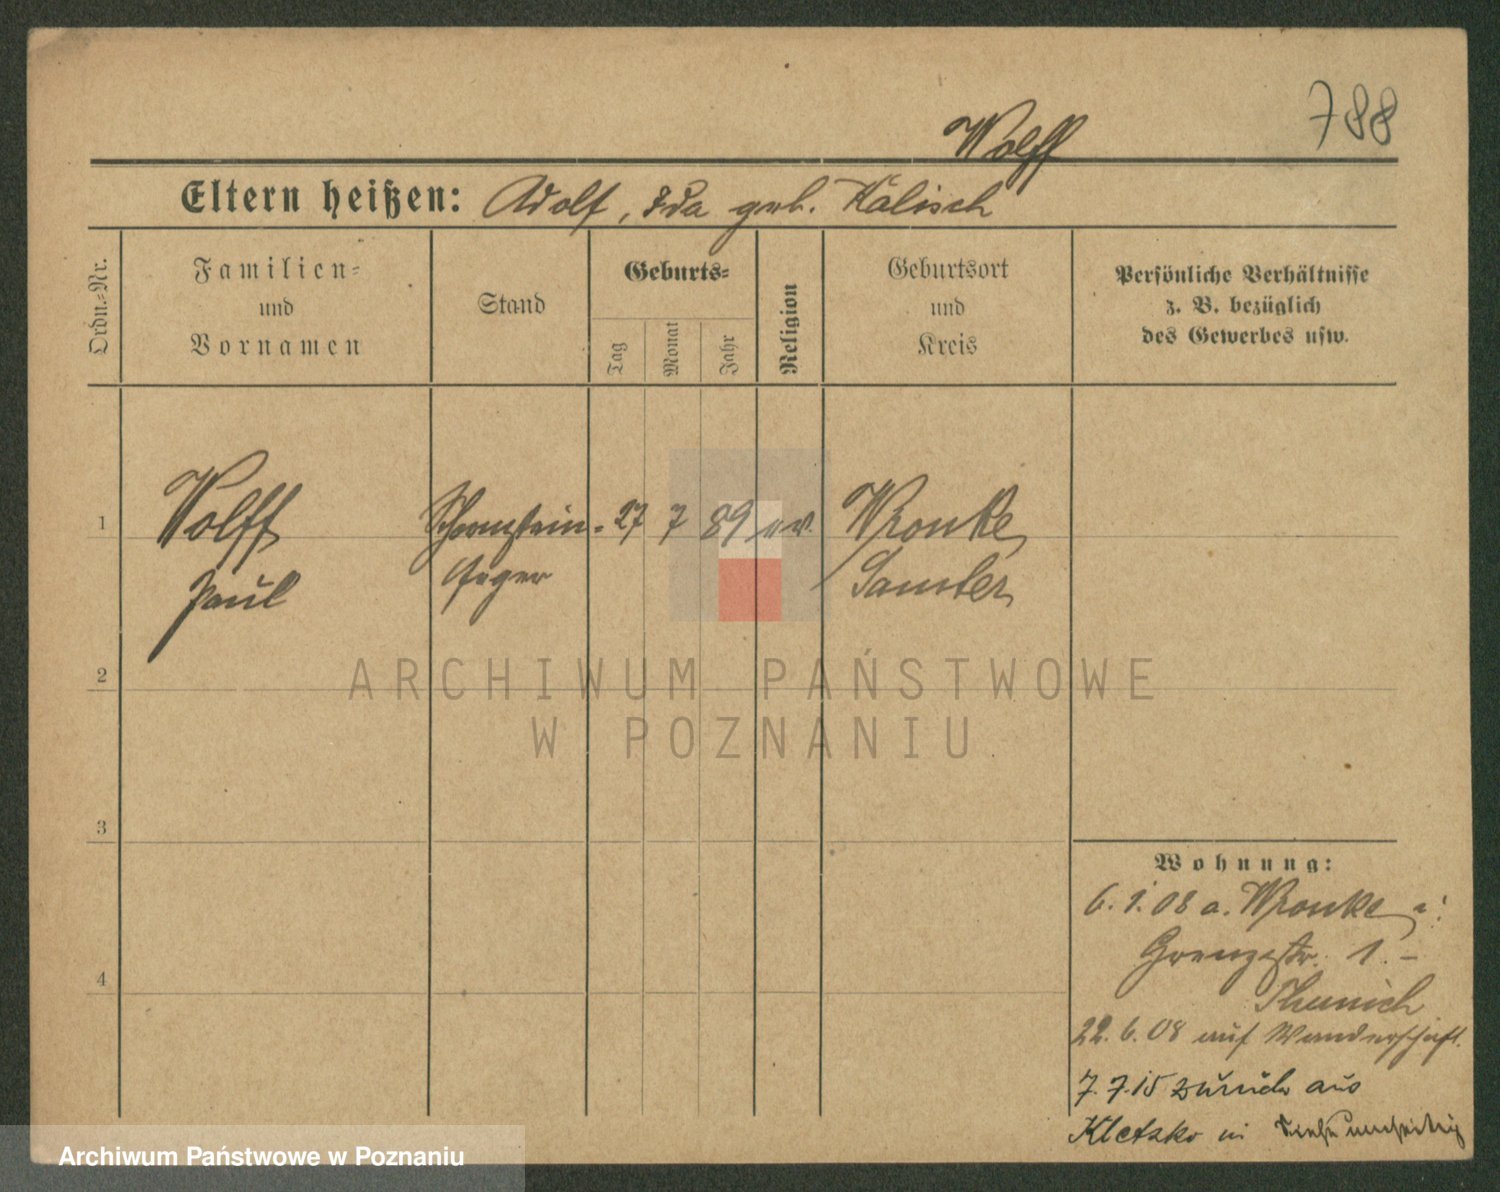 788
Wolff
Eltern heißen: Adolf, Ida geb. Kalisch
Ordn.-Nr.
Familien-
und
Vornamen
Stand
Geburts-
Tag
Monat
Jahr
Religion
Geburtsort
und
Kreis
Persönliche Verhältnisse
z. B. bezüglich
des Gewerbes usw.
1
Wolff
Paul
Schornstein-
feger
27 7 89 ev.
Wronke
Samter
2
ARCHIWUM PAŃSTWOWE
W POZNANIU
3
4
Wohnung:
6. 1. 08 a. Wronke
Grenzstr. 1. -
22. 6. 08 auf Wanderschaft.
7. 7. 15 zurück aus
Kletzko siehe umseitig
Archiwum Państwowe w Poznaniu